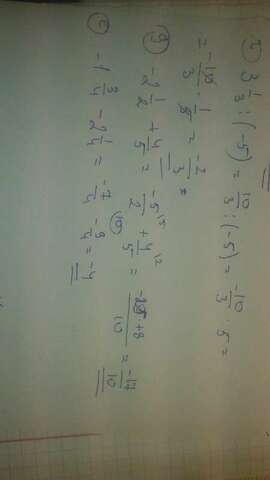 б) 3 1/3 : (-5) = 10/3 : (-5) = -10/3 · 5 =
= -10/3 · 1/5 = -2/3
g) -2 1/2 + 4/5 = -5/2 + 4/5 = -25+8/10 = -17/10
-1 3/4 - 2 1/4 = -7/4 - 9/4 = -4